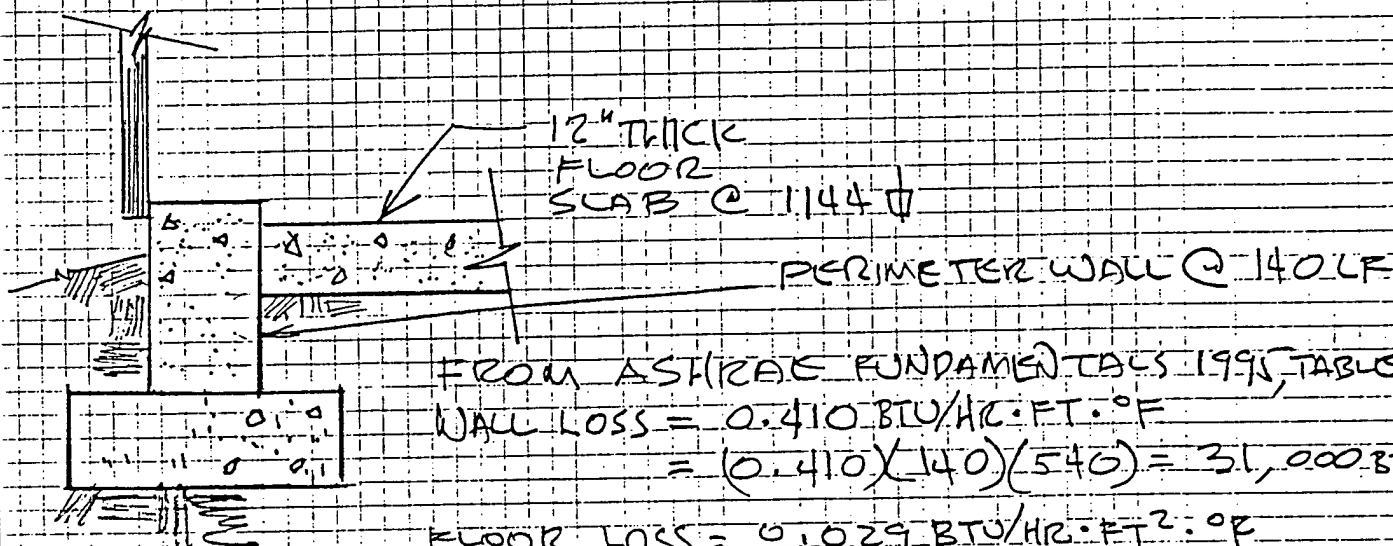 12" THICK
FLOOR
SLAB @ 1144 ⏍
PERIMETER WALL @ 140 LF
FROM ASHRAE FUNDAMENTALS 1995, TABLE
WALL LOSS = 0.410 BTU/HR·FT·°F
= (0.410)(140)(540) = 31,000 B
FLOOR LOSS = 0.029 BTU/HR·FT²·°F